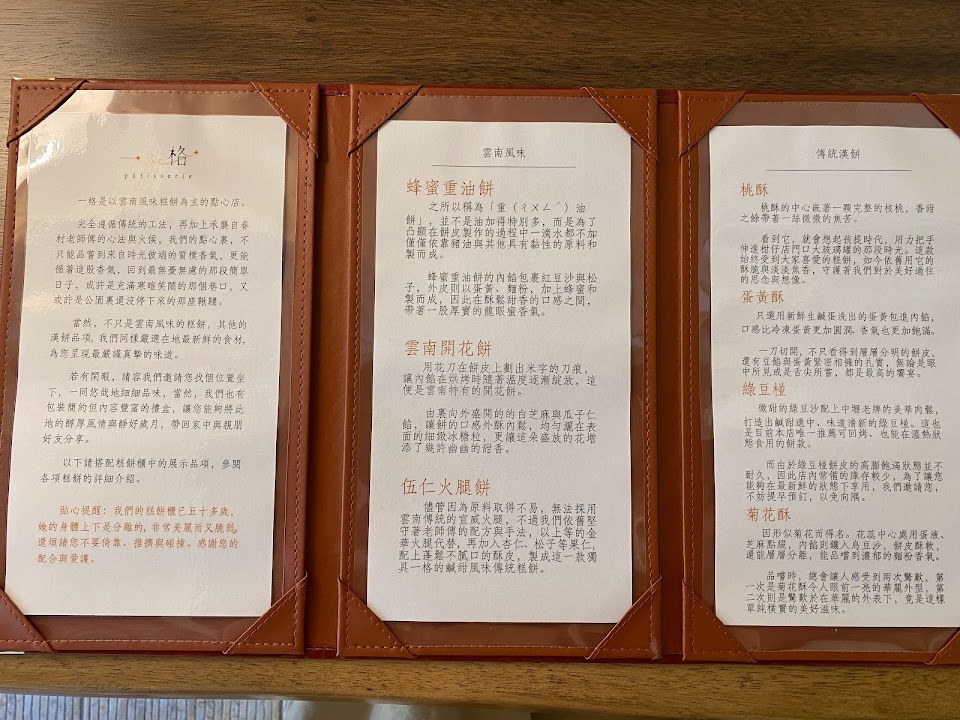 一格
pâtisserie
一格是以雲南風味糕餅為主的點心店。
完全遵循傳統的工法，再加上承襲自眷
村老師傅的心法與火侯，我們的點心裏，不
只能品嘗到來自時光彼端的質樸香氣，更能
循著這股香氣，回到最無憂無慮的那段簡單
日子，或許是充滿寒暄笑鬧的那個巷口，又
或許是公園裏還沒停下來的那座鞦韆。
當然，不只是雲南風味的糕餅，其他的
漢餅品項，我們同樣嚴選在地最新鮮的食材，
為您呈現最嚴謹真摯的味道。
若有閑暇，請容我們邀請您找個位置坐
下，一同悠哉地細細品味，當然，我們也有
包裝簡約但內容豐富的禮盒，讓您能夠將此
地的醇厚風情與靜好歲月，帶回家中與親朋
好友分享。
以下請搭配糕餅櫃中的展示品項，參閱
各項糕餅的詳細介紹。
貼心提醒：我們的糕餅櫃已五十多歲，
她的身體上下是分離的，非常美麗而又脆弱，
還煩請您不要倚靠、推擠與碰撞。感謝您的
配合與愛護。
雲南風味
蜂蜜重油餅
之所以稱為「重（ㄔㄨㄥˊ）油
餅」，並不是油加得特別多，而是為了
凸顯在餅皮製作的過程中一滴水都不加
僅僅依靠豬油與其他具有黏性的原料和
製而成。
蜂蜜重油餅的內餡包裹紅豆沙與松
子，外皮則以蛋黃、麵粉，加上蜂蜜和
製而成，因此在酥鬆甜香的口感之間，
帶著一股厚實的龍眼蜜香氣。
雲南開花餅
用花刀在餅皮上劃出米字的刀痕，
讓內餡在烘烤時隨著溫度逐漸綻放，這
便是雲南特有的開花餅。
由裏向外盛開的的白芝麻與瓜子仁
餡，讓餅的口感外酥內鬆，均勻灑在表
面的細緻冰糖粒，更讓這朵盛放的花增
添了幾許幽幽的甜香。
伍仁火腿餅
儘管因為原料取得不易，無法採用
雲南傳統的宣威火腿，不過我們依舊堅
守著老師傅的配方與手法，以上等的金
華火腿代替，再加入杏仁、松子等果仁，
配上蓬鬆不膩口的酥皮，製成這一款獨
具一格的鹹甜風味傳統糕餅。
傳統漢餅
桃酥
桃酥的中心嵌著一顆完整的核桃，香甜
之餘帶著一絲微微的焦苦。
看到它，就會想起孩提時代，用力把手
伸進柑仔店門口大玻璃罐的那段時光。這款
始終受到大家喜愛的糕餅，如今依舊用它的
酥脆與淡淡焦香，守護著我們對於美好過往
的思念與想像。
蛋黃酥
只選用新鮮生鹹蛋洗出的蛋黃包進內餡，
口感比冷凍蛋黃更加圓潤、香氣也更加飽滿。
一刀切開，不只看得到層層分明的餅皮，
還有豆餡與蛋黃緊密相擁的扎實，無論是眼
中所見或是舌尖所嘗，都是最高的饗宴。
綠豆椪
微甜的綠豆沙配上中壢老牌的美華肉鬆，
打造出鹹甜適中、味道清新的綠豆椪。這也
是目前本店唯一推薦可回烤、也能在溫熱狀
態食用的餅款。
而由於綠豆椪餅皮的高膨飽滿狀態並不
耐久，因此店內常備的庫存較少，為了讓您
能夠在最新鮮的狀態下享用，我們邀請您，
不妨提早預訂，以免向隅。
菊花酥
因形似菊花而得名。花蕊中心處用蛋液、
芝麻點綴，內餡則鑲入烏豆沙，餅皮酥軟，
還能層層分離，能品嚐到濃郁的麵粉香氣。
品嚐時，總會讓人感受到兩次驚歎，第
一次是菊花酥令人眼前一亮的華麗外型，第
二次則是驚歎於在華麗的外表下，竟是這樣
單純樸實的美好滋味。